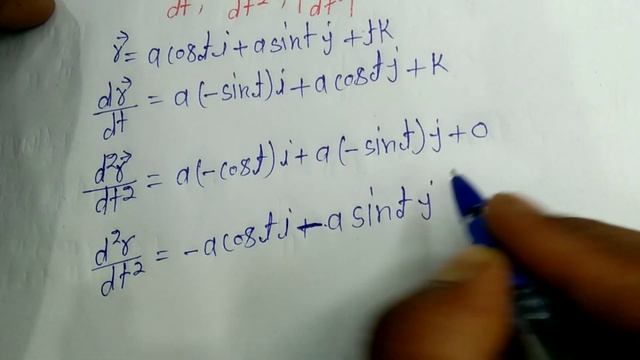 dt, dt², |dt|
r⃗ = a cost i + a sint j + tK
dr⃗/dt = a(-sint)i + a cost j + K
d²r⃗/dt² = a(-cost)i + a(-sint)j + 0
d²r/dt² = -a cost i - a sint j